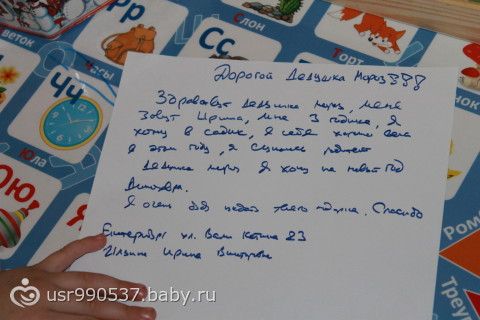 Дорогой Дедушка Мороз!!!
Здравствуй Дедушка мороз, меня
зовут Ирина, мне 3 годика, я
хожу в садик, я себя хорошо вела
в этом году, я слушалась
Дедушка мороз я хочу на новый год
Я очень буду ждать твоего подарка. Спасибо
Екатеринбург ул. 23
Ирина Викторовна
цветок
Рр
Часы
Сс
Слон
Торт
Чч
Юла
Юю
Ром
Треу
usr990537.baby.ru